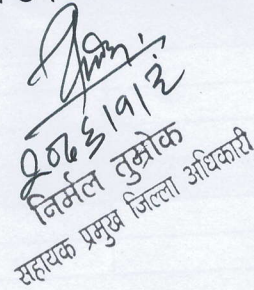 २०७३।१।२
निर्मल तुम्रोक
सहायक प्रमुख जिल्ला अधिकारी